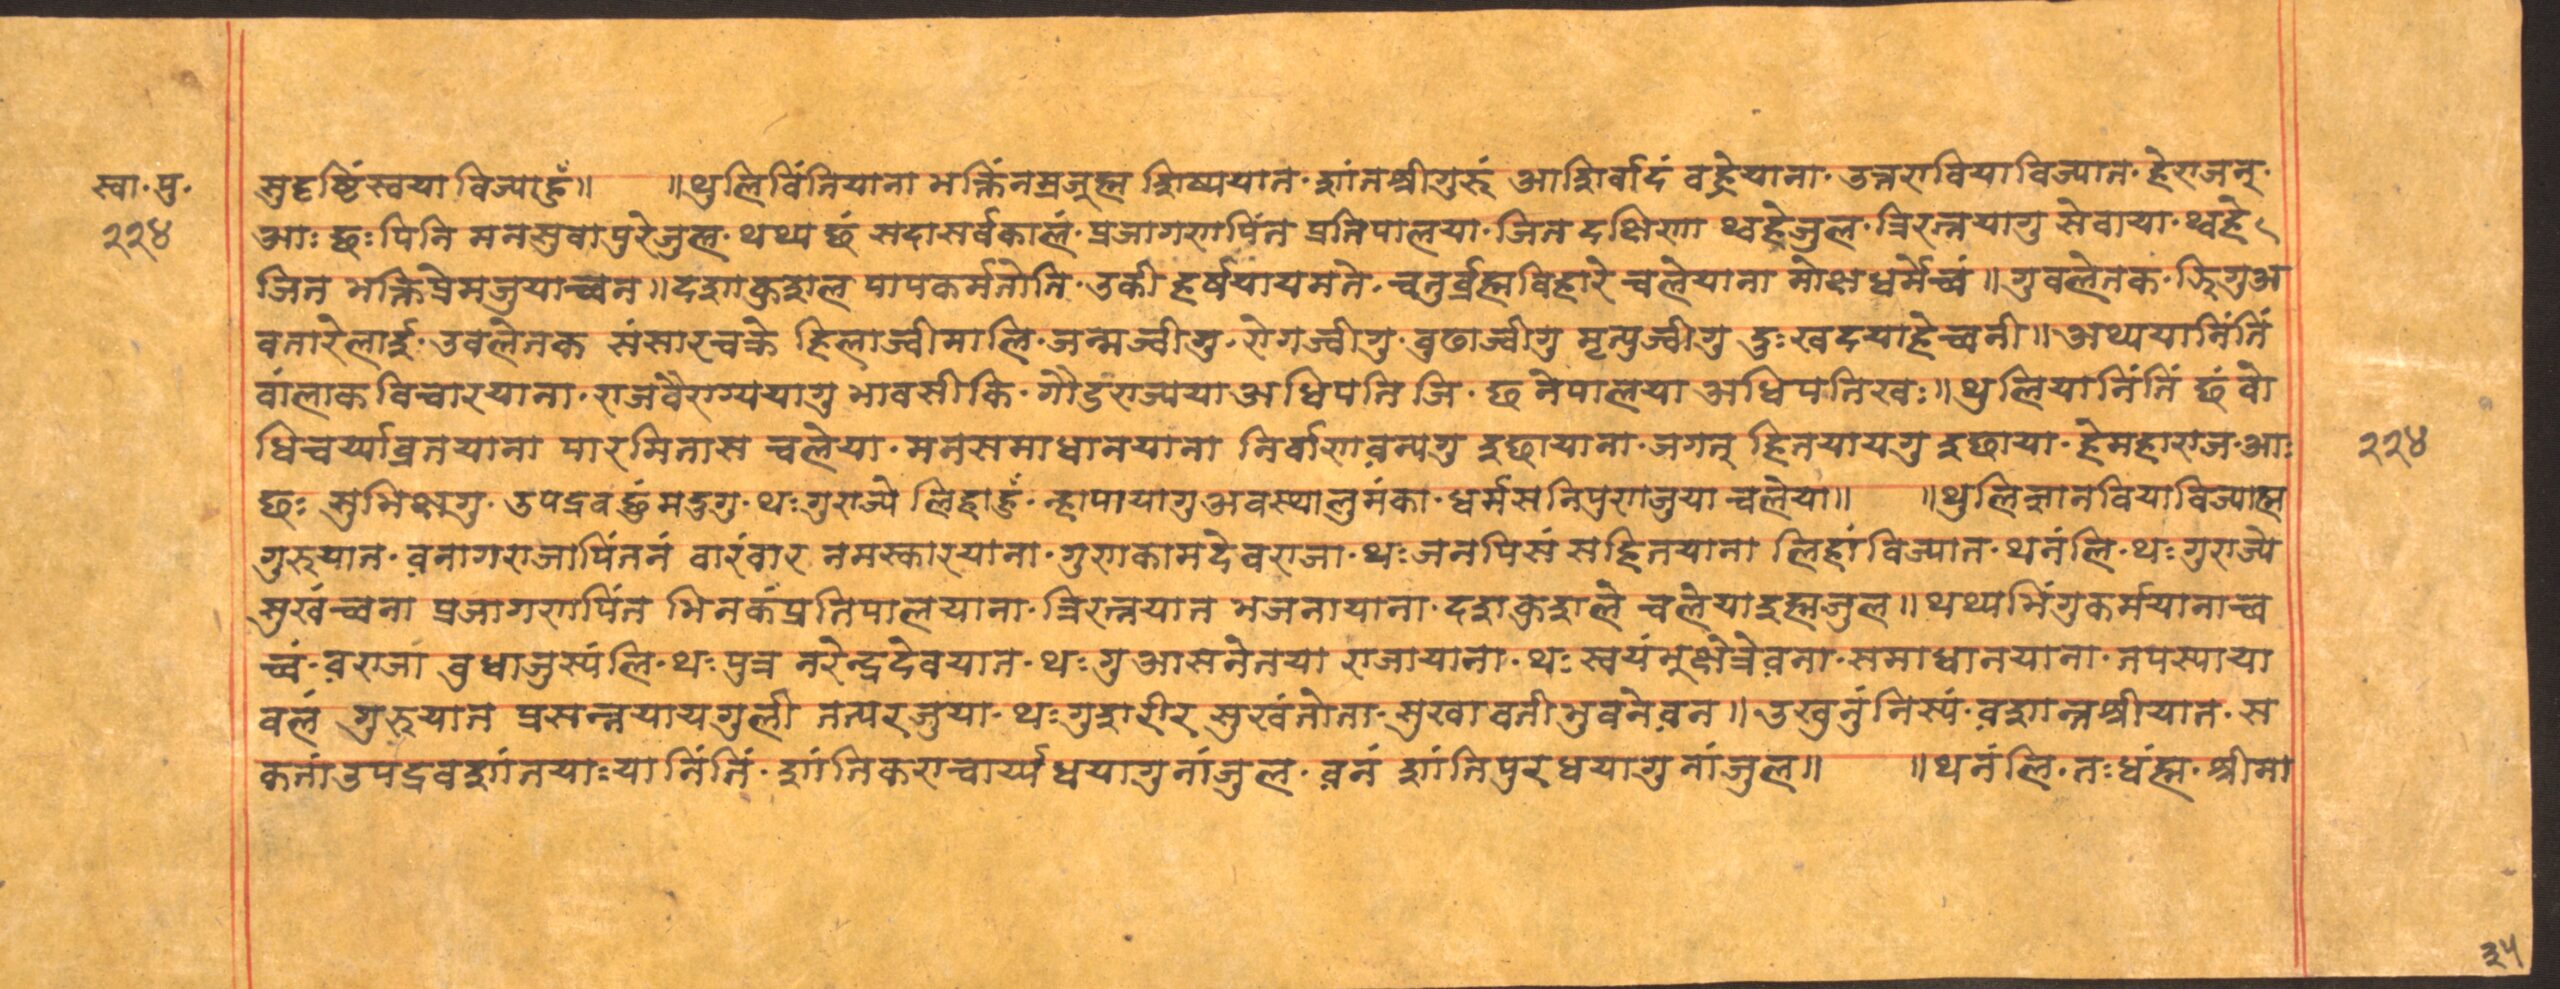 स्वा॰ पु॰
२२४
सुदृष्टिंस्वया विज्याहुँ॥ ॥थुलिविंतियाना भक्तिंनम्रजूह्म शिष्ययात॰ शांतश्रीगुरूं आशिर्वादं वह्रेयाना॰ उत्तरावियाविज्यात॰ हेराजन्॰
आः छः पिनि मनसुवापुरेजुल॰ थथ्य छं सदासर्वकालं॰ प्रजागणपिंत प्रतिपालया॰ जित दक्षिणा थ्वहेजुल॰ त्रिरत्नयागु सेवाया॰ थ्वहे
जित भक्तिप्रेमजुयाच्वन॥ दशाकुशल पापकर्मतोति॰ उकी हर्षयायमते॰ चतुर्ब्रह्मविहारे चलेयाना मोक्षधर्मेच्वं॥ गुवलेतक॰ जिगुअ
वतारेलाई॰ उवलेतक संसारचक्रे हिलाज्वीमालि॰ जन्मज्वीगु॰ रोगज्वीगु॰ वुढाज्वीगु मृत्युज्वीगु दुःखदयाहेच्वनी॥ अथ्ययानिंतिं
वांलाक विचारयाना॰ राजंवैराग्ययागु भावसीकि॰ गौडराज्यया अधिपति जि॰ छ नेपालया अधिपतिखः॥ थुलियानिंतिं छं वो
धिचर्य्याव्रतयाना पारमितास चलेया॰ मनसमाधानयाना निर्वाणवन्यगु इछायाना॰ जगत् हितयायगु इछाया॰ हेमहाराज॰ आः
छः सुभिक्षगु॰ उपद्रव छुंमदुगु॰ थःगुराज्ये लिहाहुँ॰ न्हापायागुअवस्थालुमंका॰ धर्मसनिपुणजुया चलेया॥ ॥थुलिज्ञानवियाविज्याह्म
गुरुयात॰ वनागराजापिंतनं वारंवार नमस्कारयाना॰ गुणकामदेवराजा॰ थःजनपिसं सहितयाना लिहांविज्यात॰ थनंलि॰ थःगुराज्ये
सुखंच्वना प्रजागणपिंत भिनकंप्रतिपालयाना॰ त्रिरत्नयात भजनायाना॰ दशकुशले चलेयाइह्मजुल॥ थथ्यभिंगुकर्मयानाच्व
च्वं॰ वराजा वुधाजुस्यंलि॰ थःपुत्र नरेन्द्रदेवयात॰ थःगुआसनेतया राजायाना॰ थः स्वयंभुक्षेत्रेवना॰ समाधानयाना॰ तपस्याया
वलं गुरुयात प्रसन्नयायगुली तत्परजुया॰ थःगुशरीर सुखंतोता॰ सुखावतीभुवनेवन॥ उखुनुंनिस्यं॰ वशान्तश्रीयात॰ स
कतां उपद्रवशांतयाःयानिंतिं॰ शांतिकराचार्य्य धयागुनांजुल॰ वनं शांतिपुर धयागुनांजुल॥ ॥थनंलि॰ तःधंह्म॰ श्रीमा
२२४
३५